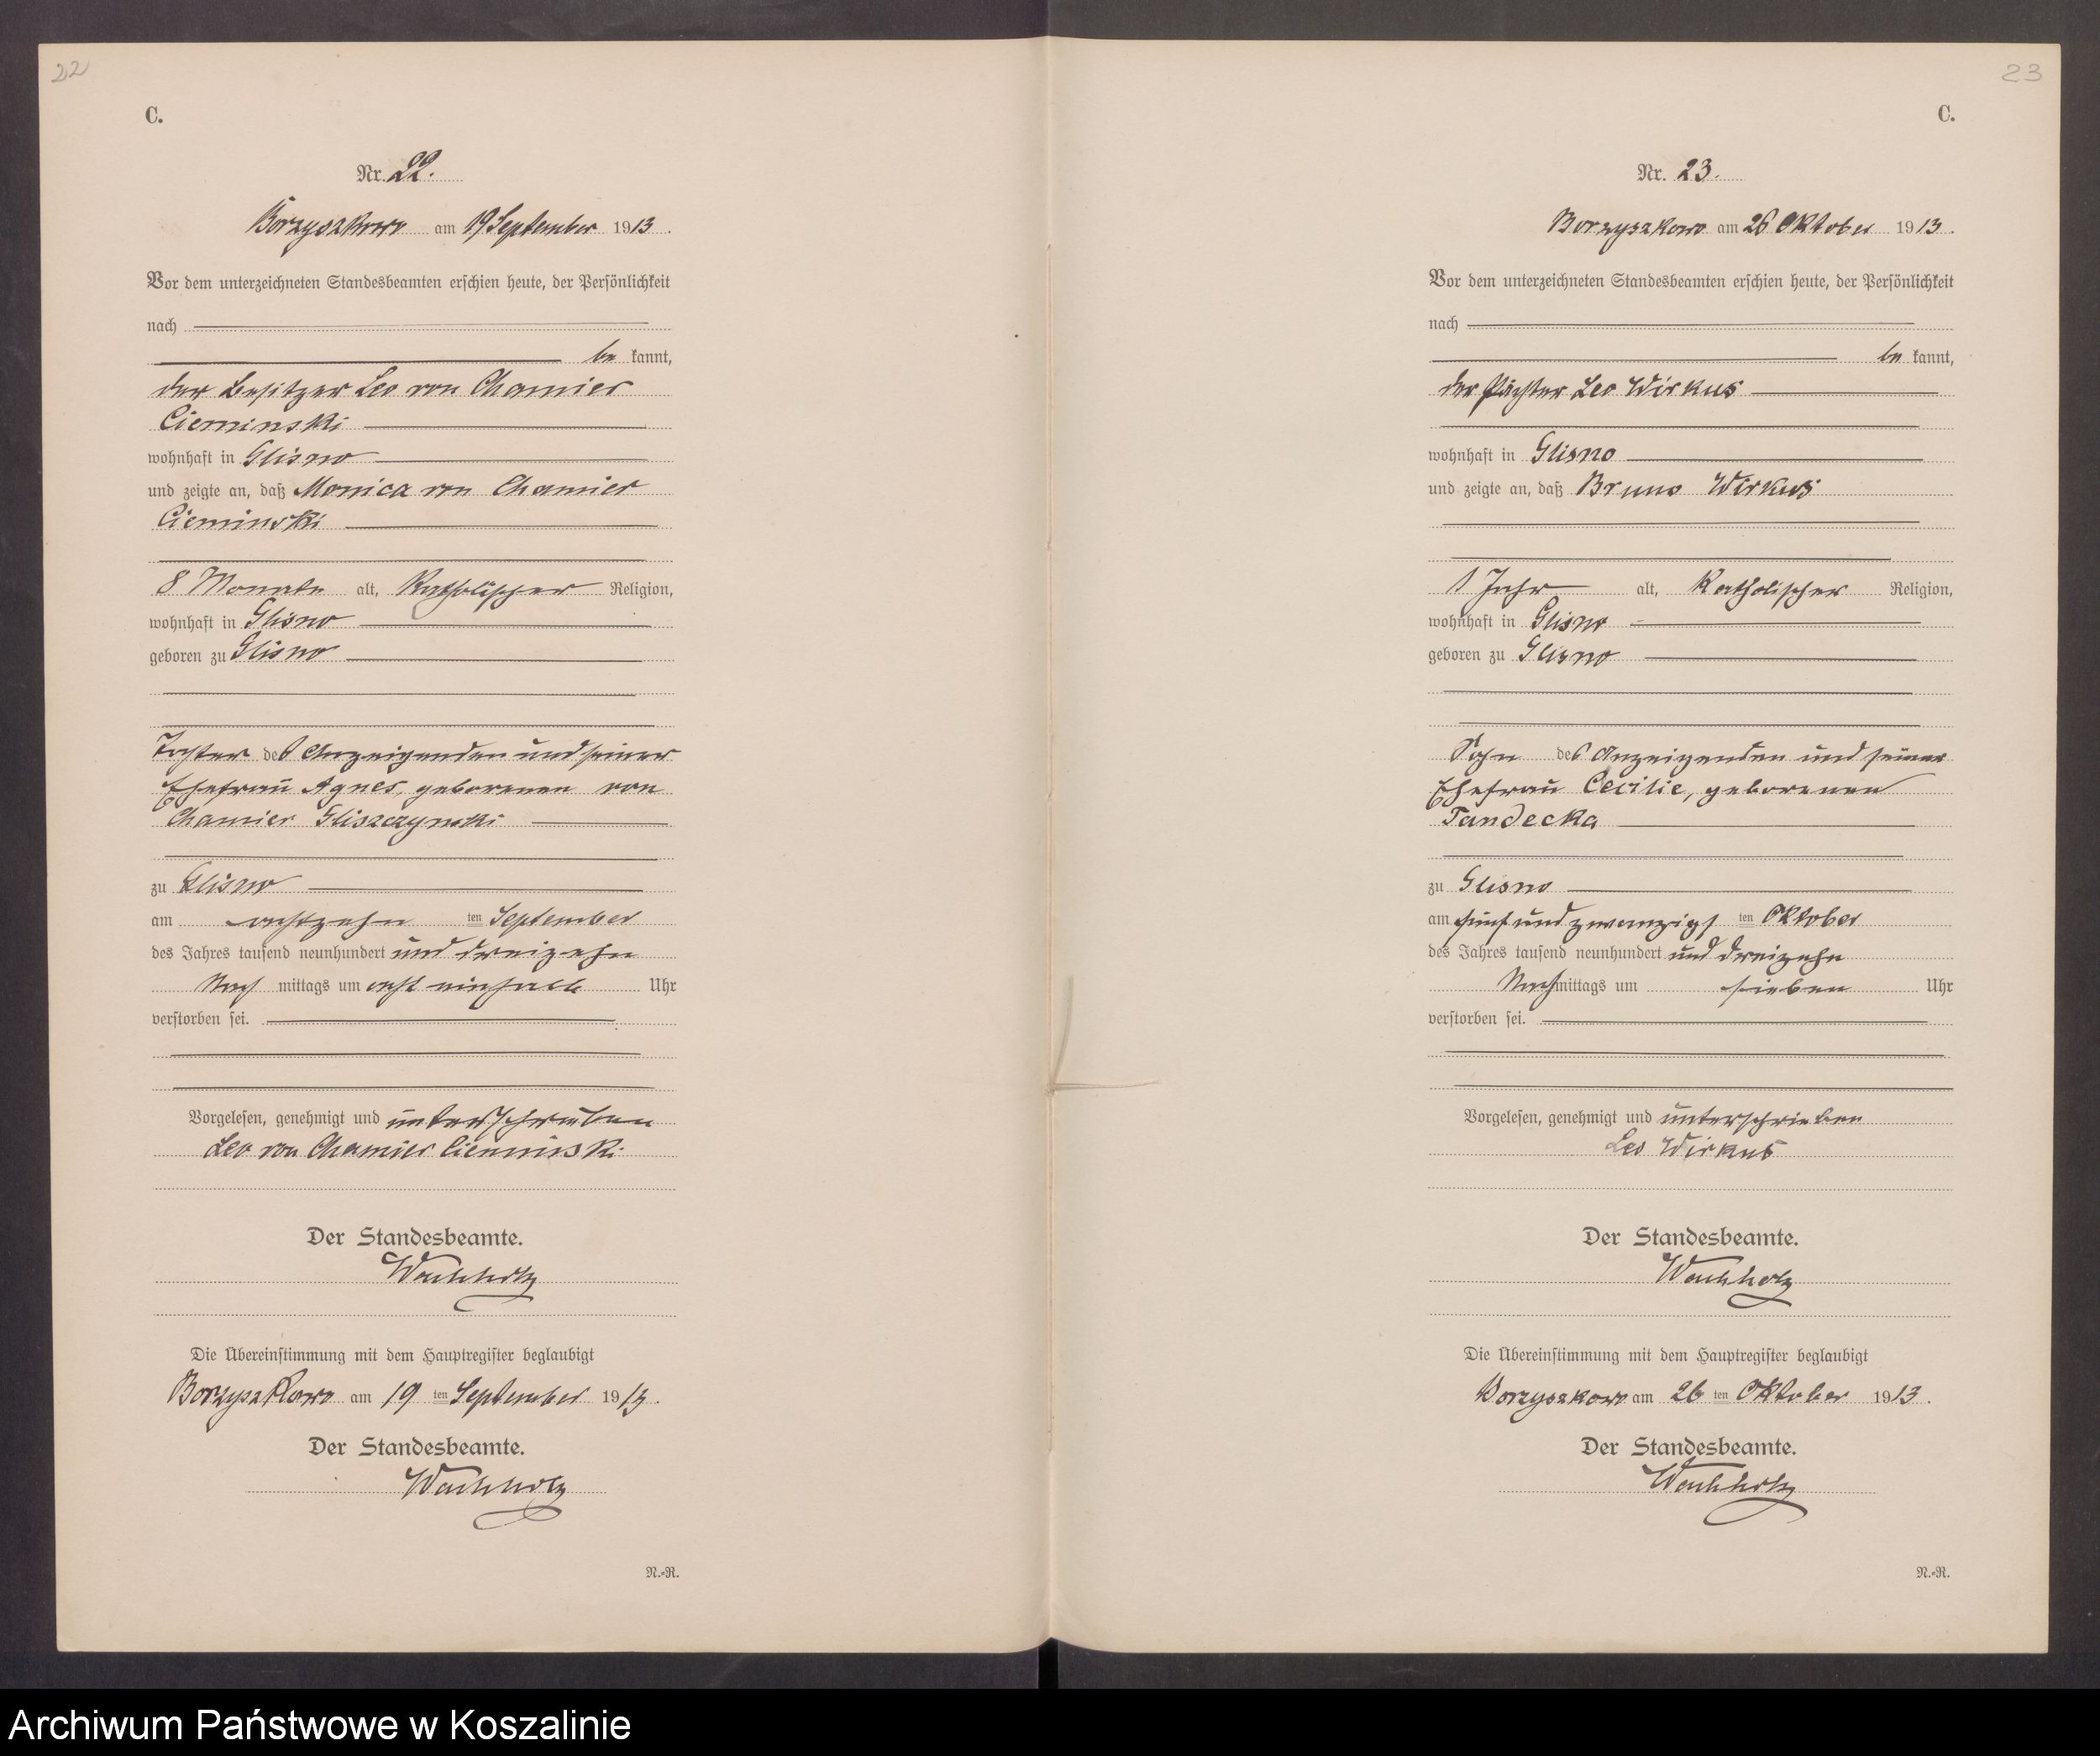 22
C.
Nr. 22.
Borzyszkowo am 19 September 1913.
Vor dem unterzeichneten Standesbeamten erschien heute, der Persönlichkeit
nach
be kannt,
der Besitzer Leo von Chamier
Cieminski
wohnhaft in Glisno
und zeigte an, daß Monica von Chamier
Cieminski
8 Monate alt, Katholischer Religion,
wohnhaft in Glisno
geboren zu Glisno
Tochter des Anzeigenden und seiner
Ehefrau Agnes, geborenen von
Chamier Gliszczynski
zu Glisno
am achtzehn ten September
des Jahres tausend neunhundert und dreizehn
Nach mittags um acht einhalb Uhr
verstorben sei.
Vorgelesen, genehmigt und unterschrieben
Leo von Chamier Cieminski
Der Standesbeamte.
Wachholz
Die Übereinstimmung mit dem Hauptregister beglaubigt
Borzyszkowo am 19 ten September 1913.
Der Standesbeamte.
Wachholz
N.-R.
23
C.
Nr. 23.
Borzyszkowo am 26 Oktober 1913.
Vor dem unterzeichneten Standesbeamten erschien heute, der Persönlichkeit
nach
be kannt,
der Pächter Leo Wirkus
wohnhaft in Glisno
und zeigte an, daß Bruno Wirkus
1 Jahr alt, Katholischer Religion,
wohnhaft in Glisno
geboren zu Glisno
Sohn des Anzeigenden und seiner
Ehefrau Cecilie, geborenen
Tandecka
zu Glisno
am fünf und zwanzigs ten Oktober
des Jahres tausend neunhundert und dreizehn
Nachmittags um sieben Uhr
verstorben sei.
Vorgelesen, genehmigt und unterschrieben
Leo Wirkus
Der Standesbeamte.
Wachholz
Die Übereinstimmung mit dem Hauptregister beglaubigt
Borzyszkowo am 26 ten Oktober 1913.
Der Standesbeamte.
Wachholz
N.-R.
Archiwum Państwowe w Koszalinie